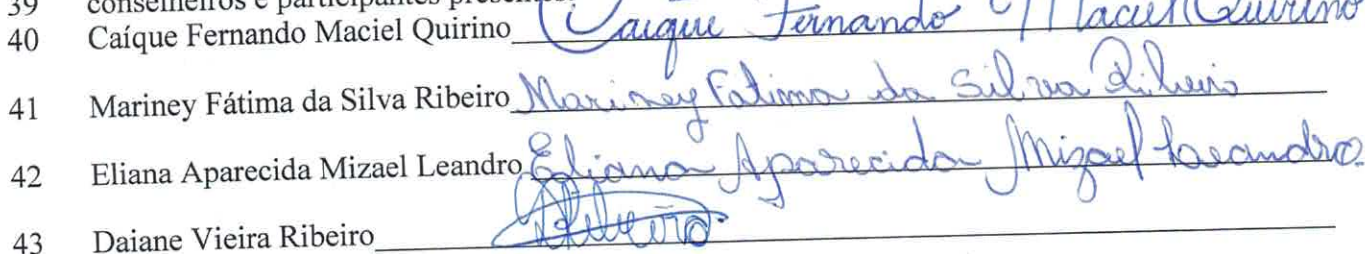 39 conselheiros e participantes
40 Caíque Fernando Maciel Quirino Caique Fernando Maciel Quirino
41 Mariney Fátima da Silva Ribeiro Mariney Fatima da Silva Ribeiro
42 Eliana Aparecida Mizael Leandro Eliana Aparecida Mizael Leandro
43 Daiane Vieira Ribeiro Ribeiro